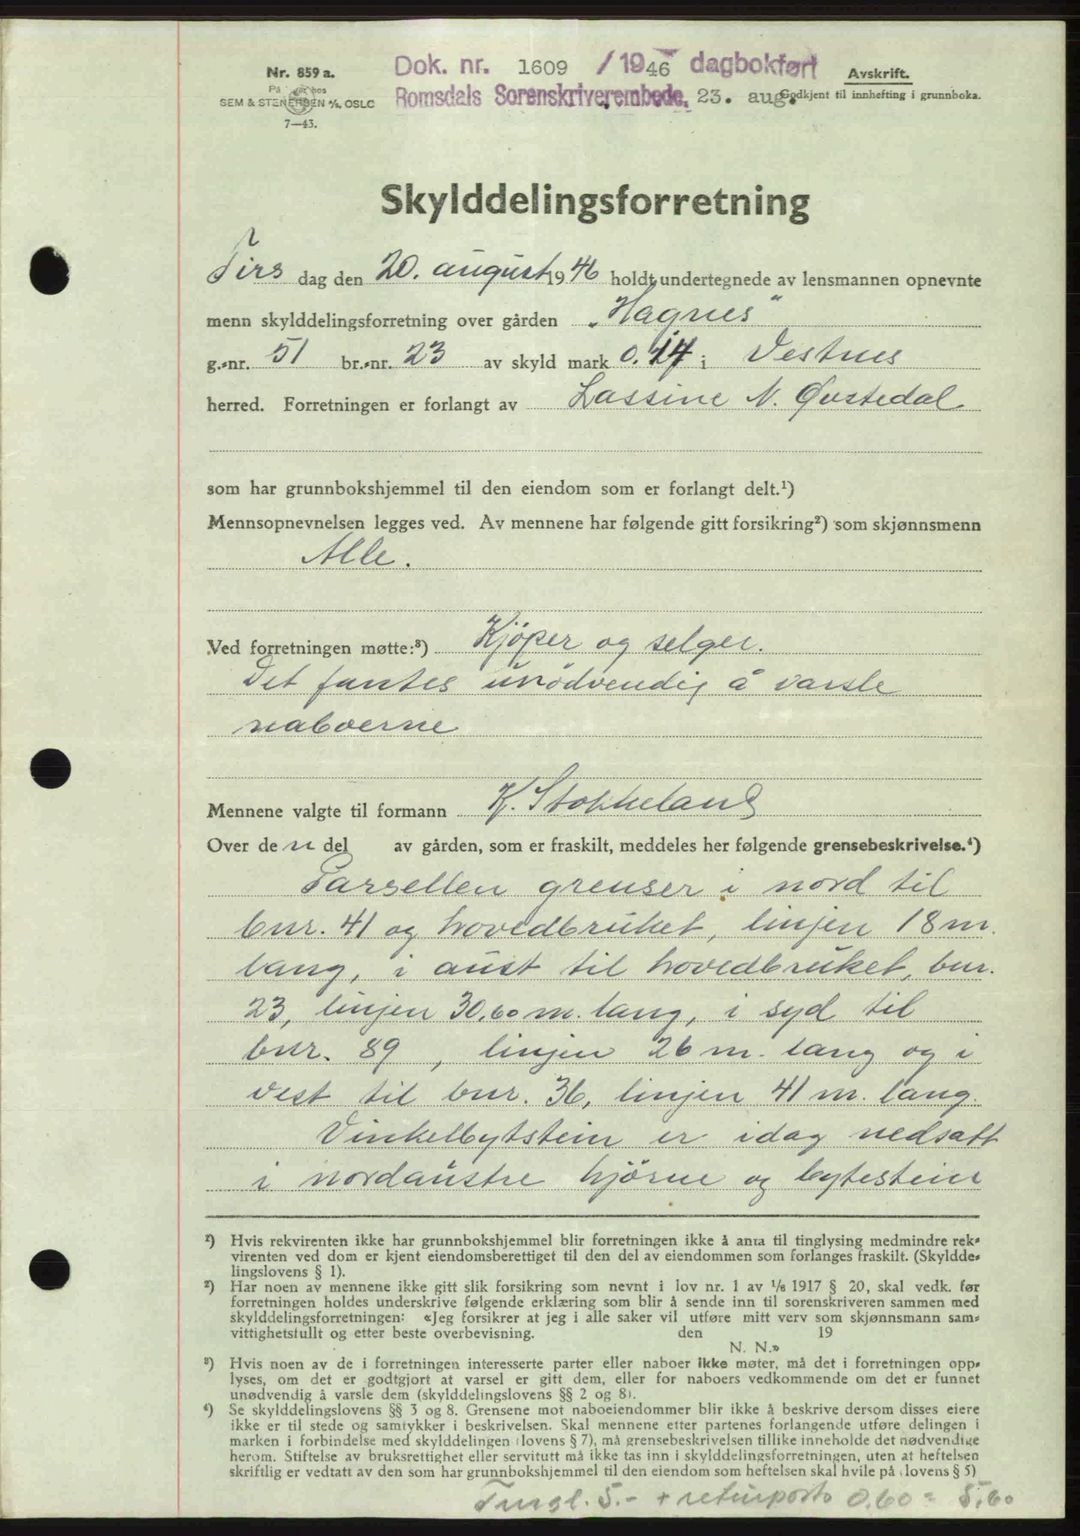 Nr. 859 a.
På hos
SEM & STENERSEN A/S, OSLO
7—43.
Dok. nr. 1609 / 1946 dagbokført
Romsdals Sorenskriverembede, 23. aug.
Avskrift.
Godkjent til innhefting i grunnboka.
Skylddelingsforretning
Tirs dag den 20. august 1946 holdt undertegnede av lensmannen opnevnte
menn skylddelingsforretning over gården „Hagnes"
g.-nr. 51 br.-nr. 23 av skyld mark 0.17 i Vestnes
herred. Forretningen er forlangt av Lassine N. Øvstedal
som har grunnbokshjemmel til den eiendom som er forlangt delt.¹)
Mennsopnevnelsen legges ved. Av mennene har følgende gitt forsikring²) som skjønnsmenn
Alle.
Ved forretningen møtte:³) Kjöper og selger.
Det fantes unödvendig å varsle
naboerne
Mennene valgte til formann K. Stokkeland
Over den del av gården, som er fraskilt, meddeles her følgende grensebeskrivelse.⁴)
Parsellen grenser i nord til
bnr. 41 og hovedbruket, linjen 18 m.
lang, i aust til hovedbruket, bnr.
23, linjen 30,60 m. lang, i syd til
bnr. 89, linjen 26 m. lang og i
vest til bnr. 36, linjen 41 m. lang.
Vinkelbytstein er idag nedsatt
i nordaustre hjörne og bytestein
¹) Hvis rekvirenten ikke har grunnbokshjemmel blir forretningen ikke å anta til tinglysing medmindre rek-
virenten ved dom er kjent eiendomsberettiget til den del av eiendommen som forlanges fraskilt. (Skyldde-
lingslovens § 1).
²) Har noen av mennene ikke gitt slik forsikring som nevnt i lov nr. 1 av ¹/₆ 1917 § 20, skal vedk. før
forretningen holdes underskrive følgende erklæring som blir å sende inn til sorenskriveren sammen med
skylddelingsforretningen: «Jeg forsikrer at jeg i alle saker vil utføre mitt verv som skjønnsmann sam-
vittighetsfullt og etter beste overbevisning. den 19
N. N.»
³) Hvis noen av de i forretningen interesserte parter eller naboer ikke møter, må det i forretningen opp-
lyses, om det er godtgjort at varsel er gitt dem, eller for naboers vedkommende om det er funnet
unødvendig å varsle dem (skylddelingslovens §§ 2 og 8).
⁴) Se skylddelingslovens §§ 3 og 8. Grensene mot naboeiendommer blir ikke å beskrive dersom disses eiere
ikke er til stede og samtykker i beskrivelsen. Skal mennene etter partenes forlangende utføre delingen i
marken i forbindelse med skylddelingen (lovens § 7), må grensebeskrivelsen tillike inneholde det nødvendige
herom. Stiftelse av bruksrettighet eller servitutt må ikke tas inn i skylddelingsforretningen, uten at heftelsen
skriftlig er vedtatt av den som har grunnbokshjemmel til den eiendom som heftelsen skal hvile på (lovens § 5)
Tingl. 5.- + returporto 0,60 = 5,60